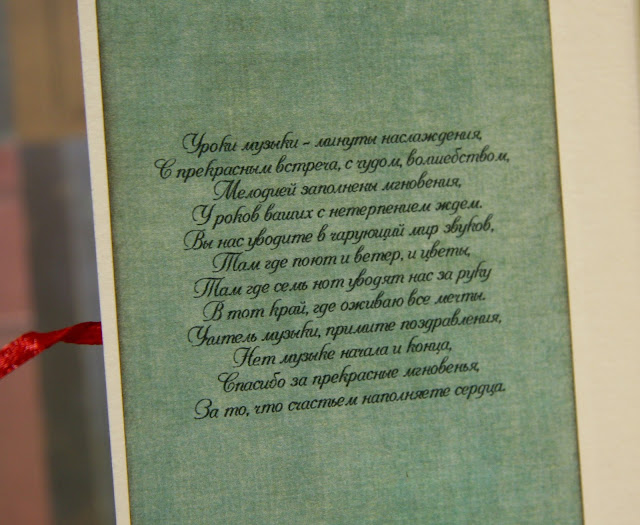 Уроки музыки - минуты наслаждения,
С прекрасным встреча, с чудом, волшебством,
Мелодией заполнены мгновения,
Уроков ваших с нетерпением ждем.
Вы нас уводите в чарующий мир звуков,
Там где поют и ветер, и цветы,
Там где семь нот уводят нас за руку
В тот край, где оживаю все мечты.
Учитель музыки, примите поздравления,
Нет музыке начала и конца,
Спасибо за прекрасные мгновенья,
За то, что счастьем наполняете сердца.